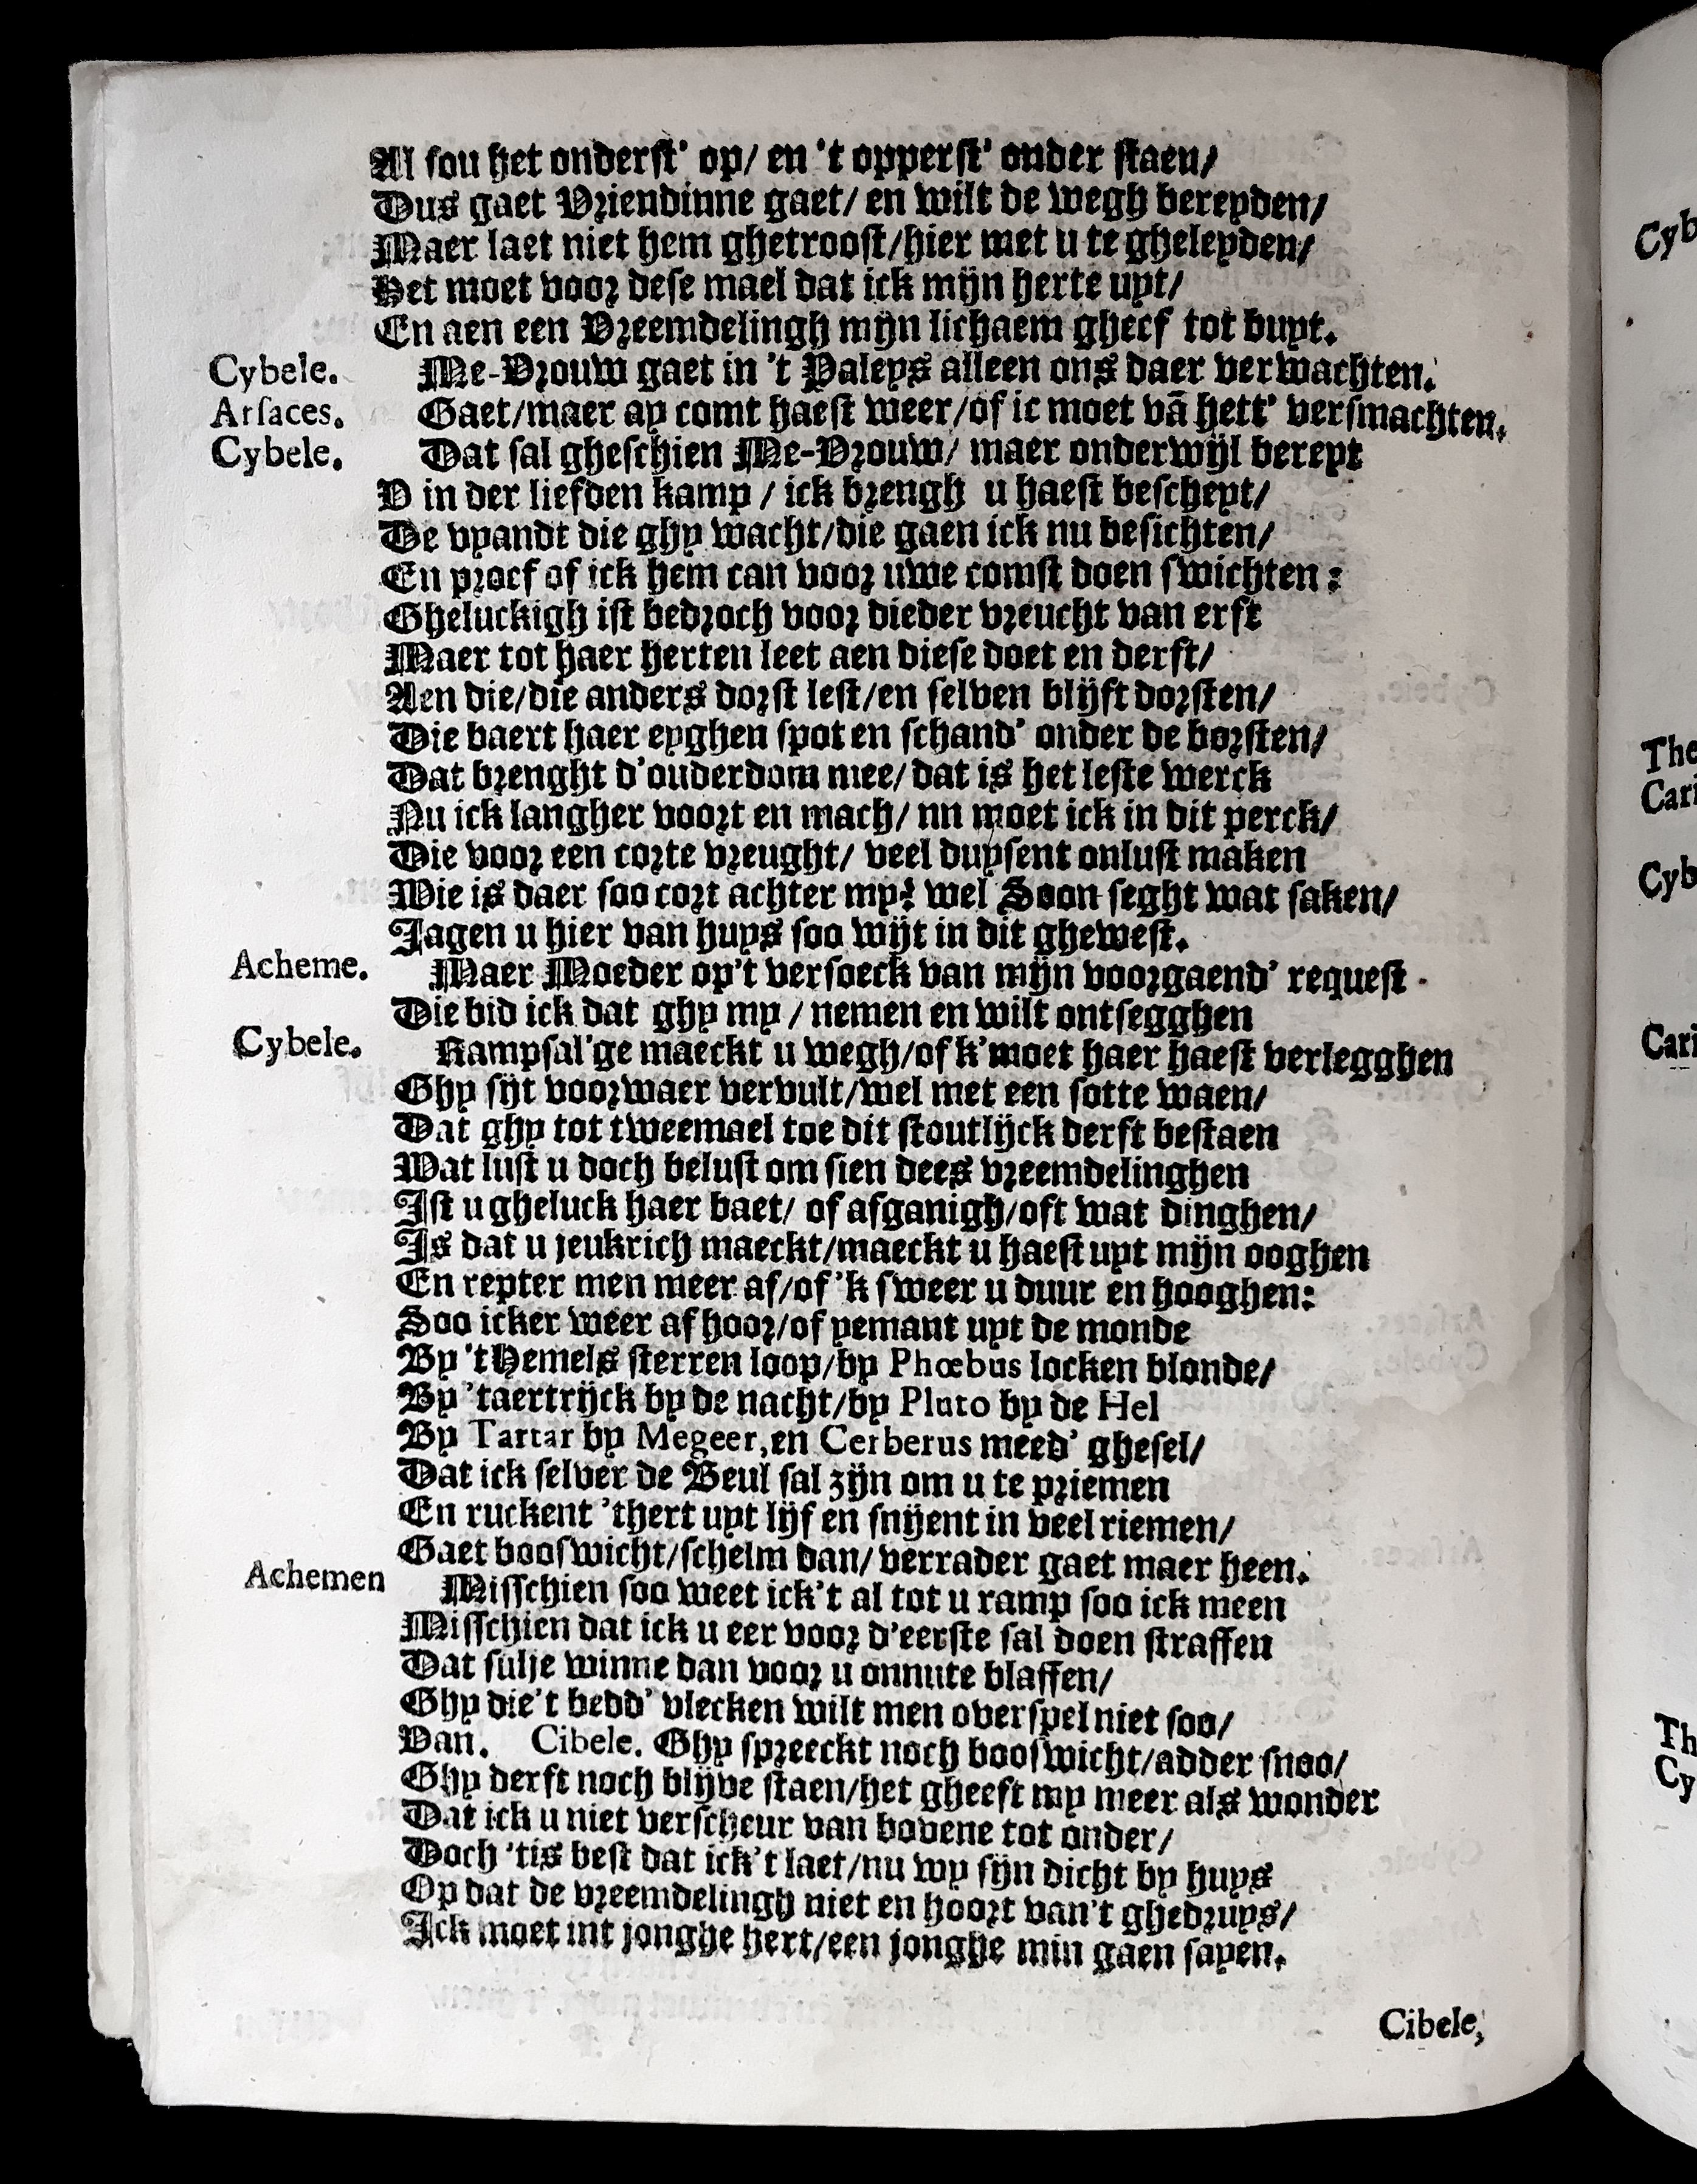 Al sou het onderst' op/ en 't opperst' onder staen/
Dus gaet Vriendinne gaet/ en wilt de wegh bereyden/
Maer laet niet hem ghetroost/hier met u te gheleyden/
Het moet voor dese mael dat ick mijn herte uyt/
En aen een Vreemdelingh mijn lichaem gheef tot buyt.
Cybele. Me-Vrouw gaet in 't Paleys alleen ons daer verwachten.
Arsaces. Gaet/maer ay comt haest weer/of ic moet vā hett' versmachten.
Cybele. Dat sal gheschien Me-Vrouw/ maer onderwijl bereyt
V in der liefden kamp / ick brengh u haest bescheyt/
De vyandt die ghy wacht/die gaen ick nu besichten/
En proef of ick hem can voor uwe comst doen swichten:
Gheluckigh ist bedroch voor dieder vreucht van erft
Maer tot haer herten leet aen diese doet en derft/
Aen die/die anders dorst lest/en selven blijft dorsten/
Die baert haer eyghen spot en schand' onder de borsten/
Dat brenght d'ouderdom mee/ dat is het leste werck
Nu ick langher voort en mach/ nn moet ick in dit perck/
Die voor een corte vreught/ veel duysent onlust maken
Wie is daer soo cort achter my? wel Soon seght wat saken/
Jagen u hier van huys soo wijt in dit ghewest.
Acheme. Maer Moeder op't versoeck van mijn voorgaend' request
Die bid ick dat ghy my / nemen en wilt ontsegghen
Cybele. Rampsal'ge maeckt u wegh/of k'moet haer haest verlegghen
Ghy sijt voorwaer vervult/wel met een sotte waen/
Dat ghy tot tweemael toe dit stoutlijck derft bestaen
Wat lust u doch belust om sien dees vreemdelinghen
Ist u gheluck haer baet/ of afganigh/oft wat dinghen/
Is dat u jeukrich maeckt/maeckt u haest uyt mijn ooghen
En repter men meer af/of 'k sweer u duur en hooghen:
Soo icker weer af hoor/of yemant uyt de monde
By 't Hemels sterren loop/by Phœbus locken blonde/
By 'taertrijck by de nacht/by Pluto by de Hel
By Tartar by Megeer,en Cerberus meed' ghesel/
Dat ick selver de Beul sal zijn om u te priemen
En ruckent 'thert uyt lijf en snijent in veel riemen/
Gaet booswicht/schelm dan/ verrader gaet maer heen.
Achemen Misschien soo weet ick't al tot u ramp soo ick meen
Misschien dat ick u eer voor d'eerste sal doen straffen
Dat sulje winne dan voor u onnute blaffen/
Ghy die't bedd' vlecken wilt men overspel niet soo/
Van. Cibele. Ghy spreeckt noch booswicht/adder snoo/
Ghy derft noch blijve staen/het gheeft my meer als wonder
Dat ick u niet verscheur van bovene tot onder/
Doch 'tis best dat ick't laet/nu wy sijn dicht by huys
Op dat de vreemdelingh niet en hoort van't ghedruys/
Ick moet int jonghe hert/een jonghe min gaen sayen.
Cibele,
Cyb
The
Cari
Cyb
Cari
Th
Cy